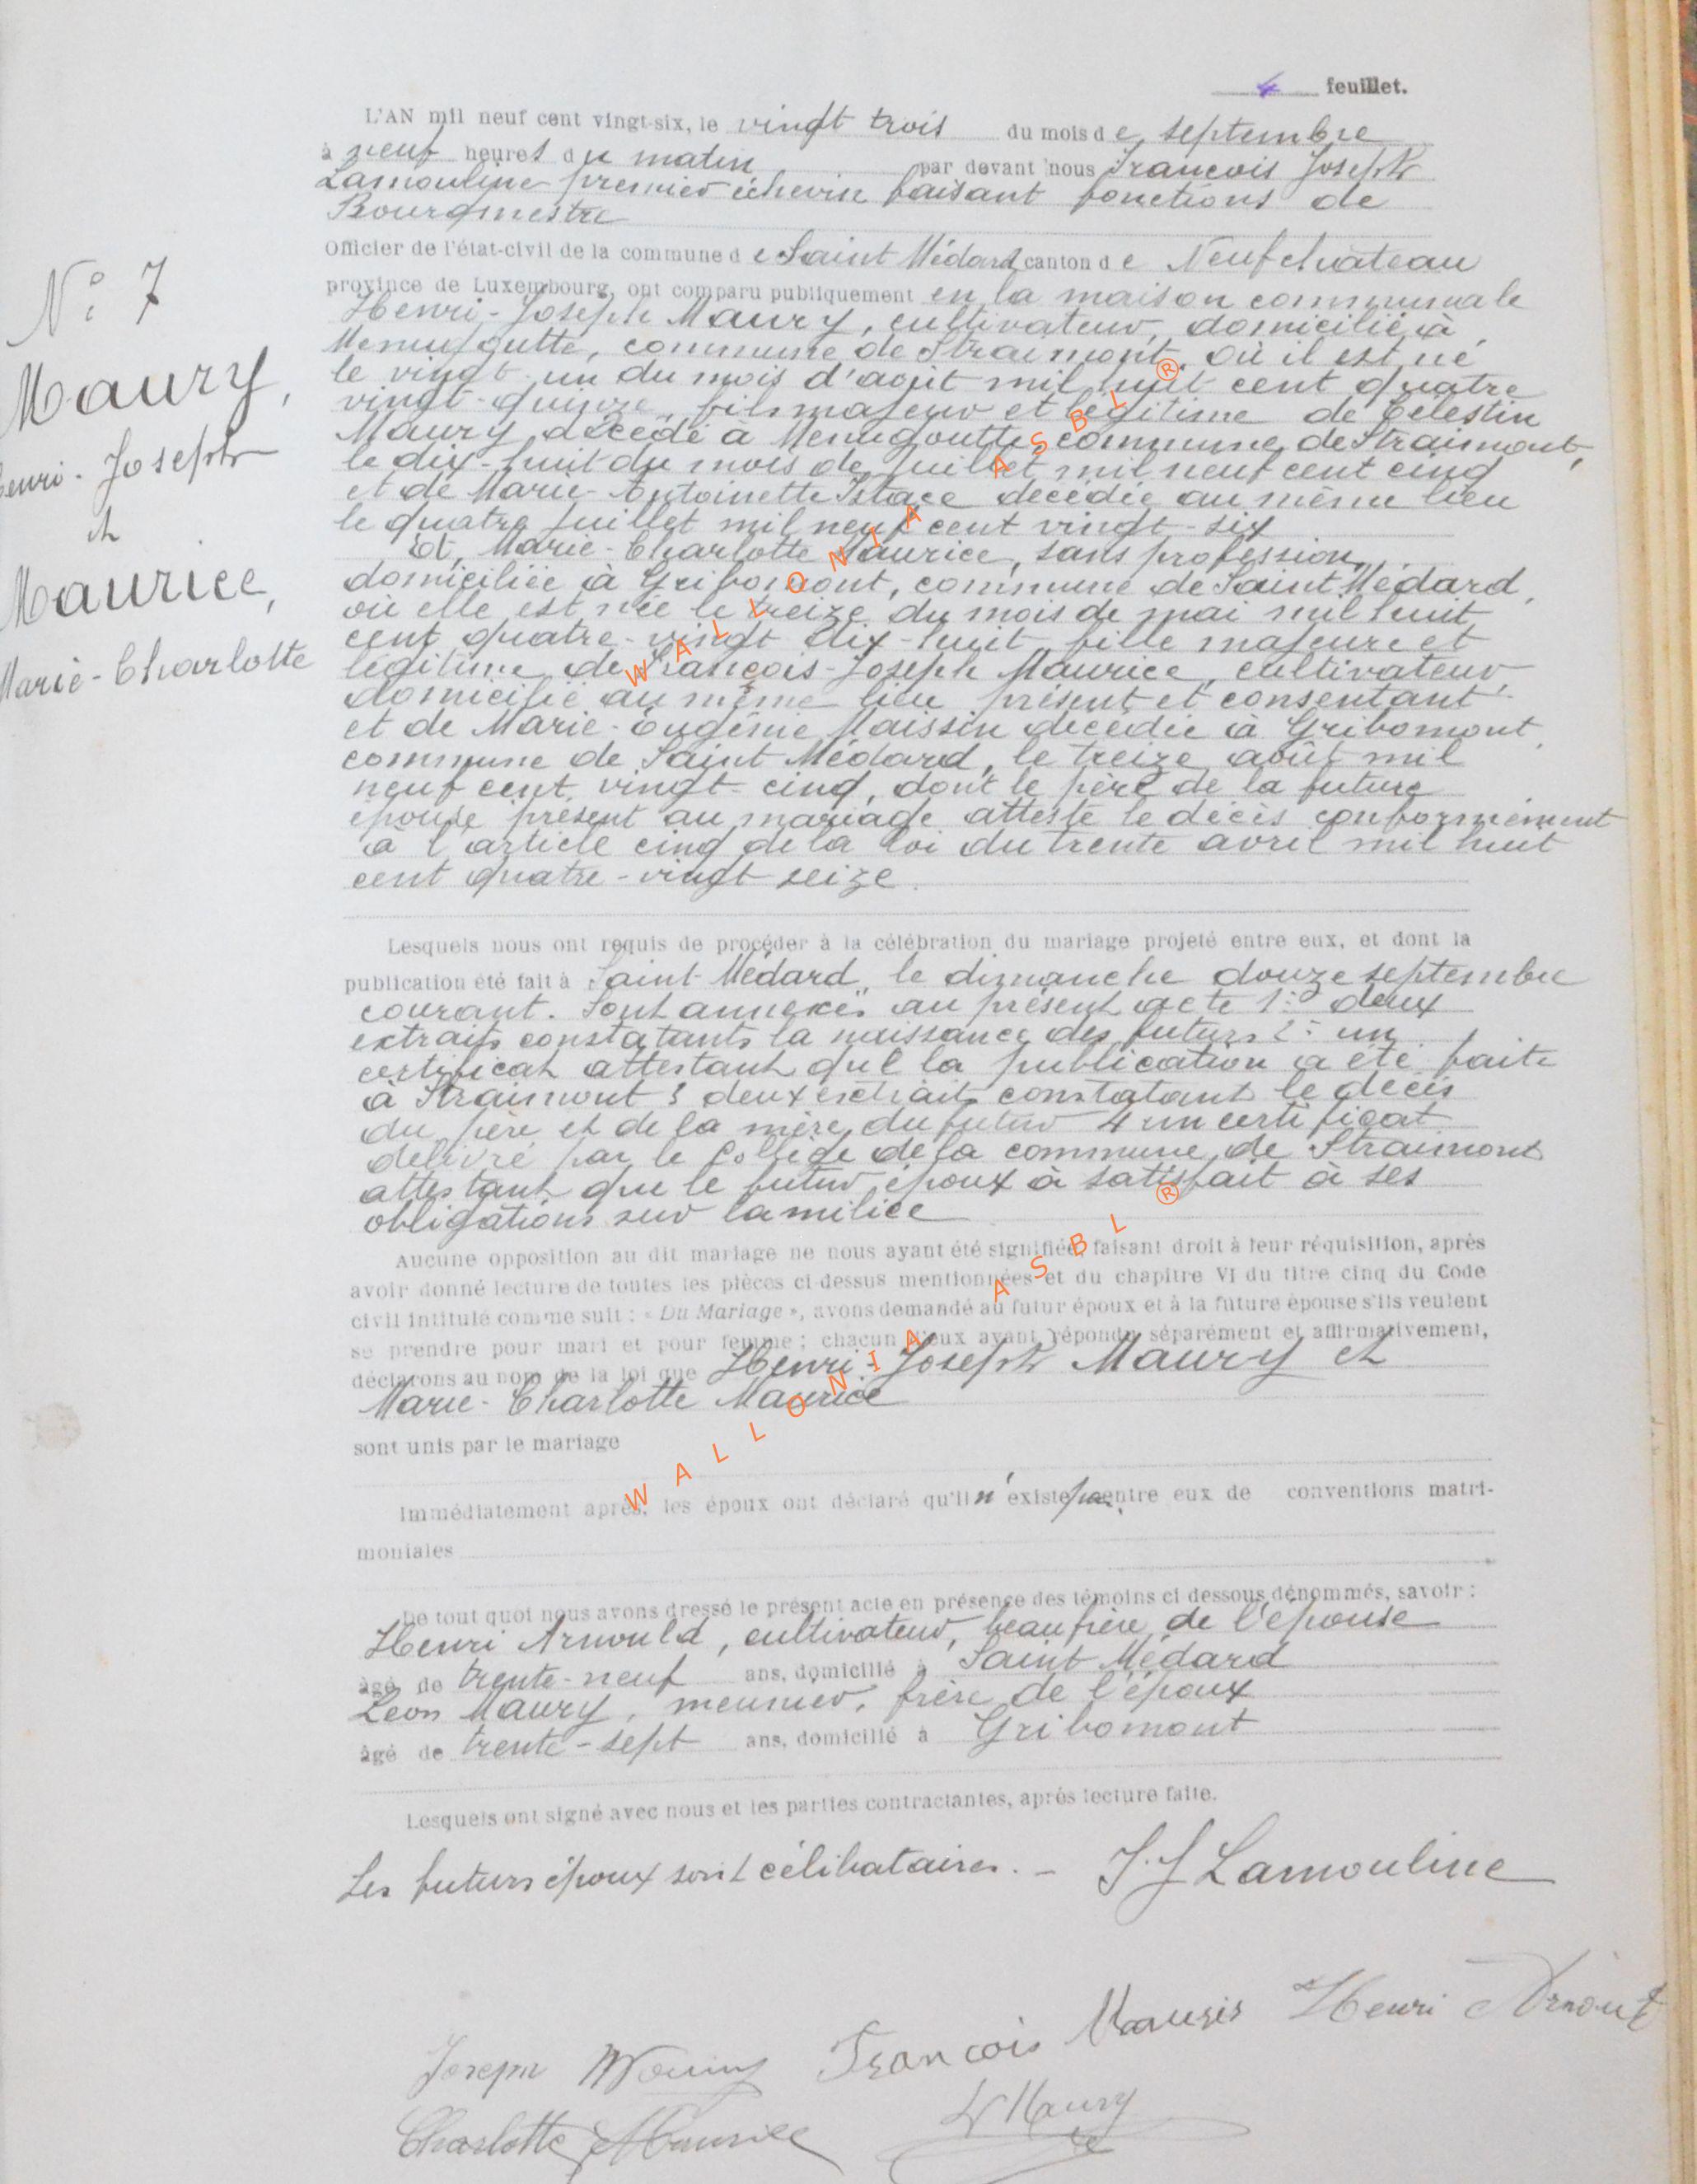 4 feuillet.
L'AN mil neuf cent vingt-six, le vingt trois du mois de septembre
à neuf heures du matin par devant nous François Joseph
Lamouline premier échevin faisant fonctions de
Bourgmestre
Officier de l'état-civil de la commune de Saint Médard canton de Neufchâteau
province de Luxembourg, ont comparu publiquement en la maison communale
Henri-Joseph Maury, cultivateur, domicilié à
Menugoutte, commune de Straimont, où il est né
le vingt-un du mois d'août mil huit cent quatre
vingt-quinze, fils majeur et légitime de Célestin
Maury décédé à Menugoutte, commune de Straimont,
le dix-huit du mois de juillet mil neuf cent cinq
et de Marie-Antoinette Istace décédée au même lieu
le quatre juillet mil neuf cent vingt-six
Et, Marie-Charlotte Maurice, sans profession,
domiciliée à Gribomont, commune de Saint Médard,
où elle est née le treize du mois de mai mil huit
cent quatre-vingt dix-huit, fille majeure et
légitime de François-Joseph Maurice, cultivateur,
domicilié au même lieu présent et consentant
et de Marie-Eugénie Maissin décédée à Gribomont,
commune de Saint Médard, le treize août mil
neuf cent vingt-cinq, dont le père de la future
épouse présent au mariage atteste le décès conformément
à l'article cinq de la loi du trente avril mil huit
cent quatre-vingt seize.
N° 7
Maury,
Henri-Joseph
et
Maurice,
Marie-Charlotte
Lesquels nous ont requis de procéder à la célébration du mariage projeté entre eux, et dont la
publication été fait à Saint-Médard, le dimanche douze septembre
courant. Sont annexés au présent acte 1° deux
extraits constatants la naissance des futurs 2° un
certificat attestant que la publication a été faite
à Straimont 3 deux extraits constatant le décès
du père et de la mère du futur 4 un certificat
délivré par le Collège de la commune de Straimont
attestant que le futur époux à satisfait à ses
obligations sur la milice
Aucune opposition au dit mariage ne nous ayant été signifiée, faisant droit à leur réquisition, après
avoir donné lecture de toutes les pièces ci-dessus mentionnées et du chapitre VI du titre cinq du Code
civil intitulé comme suit : « Du Mariage », avons demandé au futur époux et à la future épouse s'ils veulent
se prendre pour mari et pour femme ; chacun d'eux ayant répondu séparément et affirmativement,
déclarons au nom de la loi que Henri-Joseph Maury et
Marie-Charlotte Maurice
sont unis par le mariage
Immédiatement après, les époux ont déclaré qu'il n'existe pas entre eux de conventions matri-
moniales
De tout quoi nous avons dressé le présent acte en présence des témoins ci dessous dénommés, savoir :
Henri Arnould, cultivateur, beau frère de l'épouse
âgé de trente-neuf ans, domicilié à Saint Médard
Léon Maury, meunier, frère de l'époux
âgé de trente-sept ans, domicilié à Gribomont
Lesquels ont signé avec nous et les parties contractantes, après lecture faite.
Les futurs époux sont célibataires. - F. J Lamouline
Joseph Maury François Mauris Henri Arnout
Charlotte Maurice L Maury
WALLONIA ASBL ®
WALLONIA ASBL ®